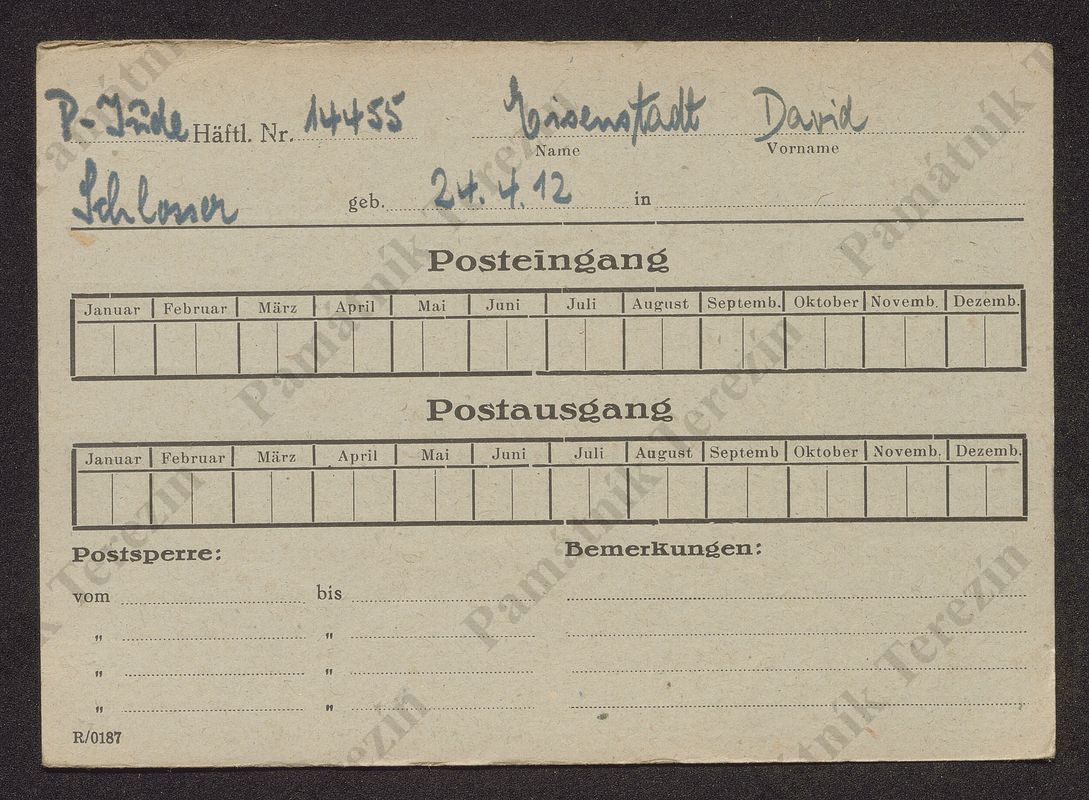 P-Jude Häftl. Nr. 14455 Eisenstadt David
Name Vorname
Schlosser geb. 24.4.12 in
Posteingang
Januar Februar März April Mai Juni Juli August Septemb. Oktober Novemb. Dezemb.
Postausgang
Januar Februar März April Mai Juni Juli August Septemb Oktober Novemb. Dezemb.
Postsperre: Bemerkungen:
vom bis
„ „
„ „
„ „
R/0187
Památník Terezín